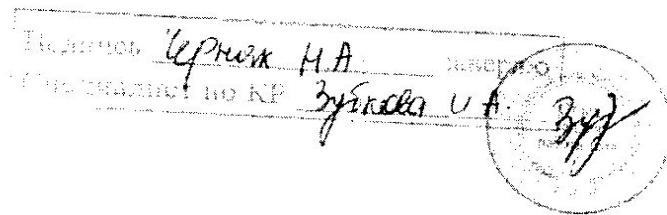 Подпись Черняк Н А заверяю
Специалист по КР Зубкова И А.